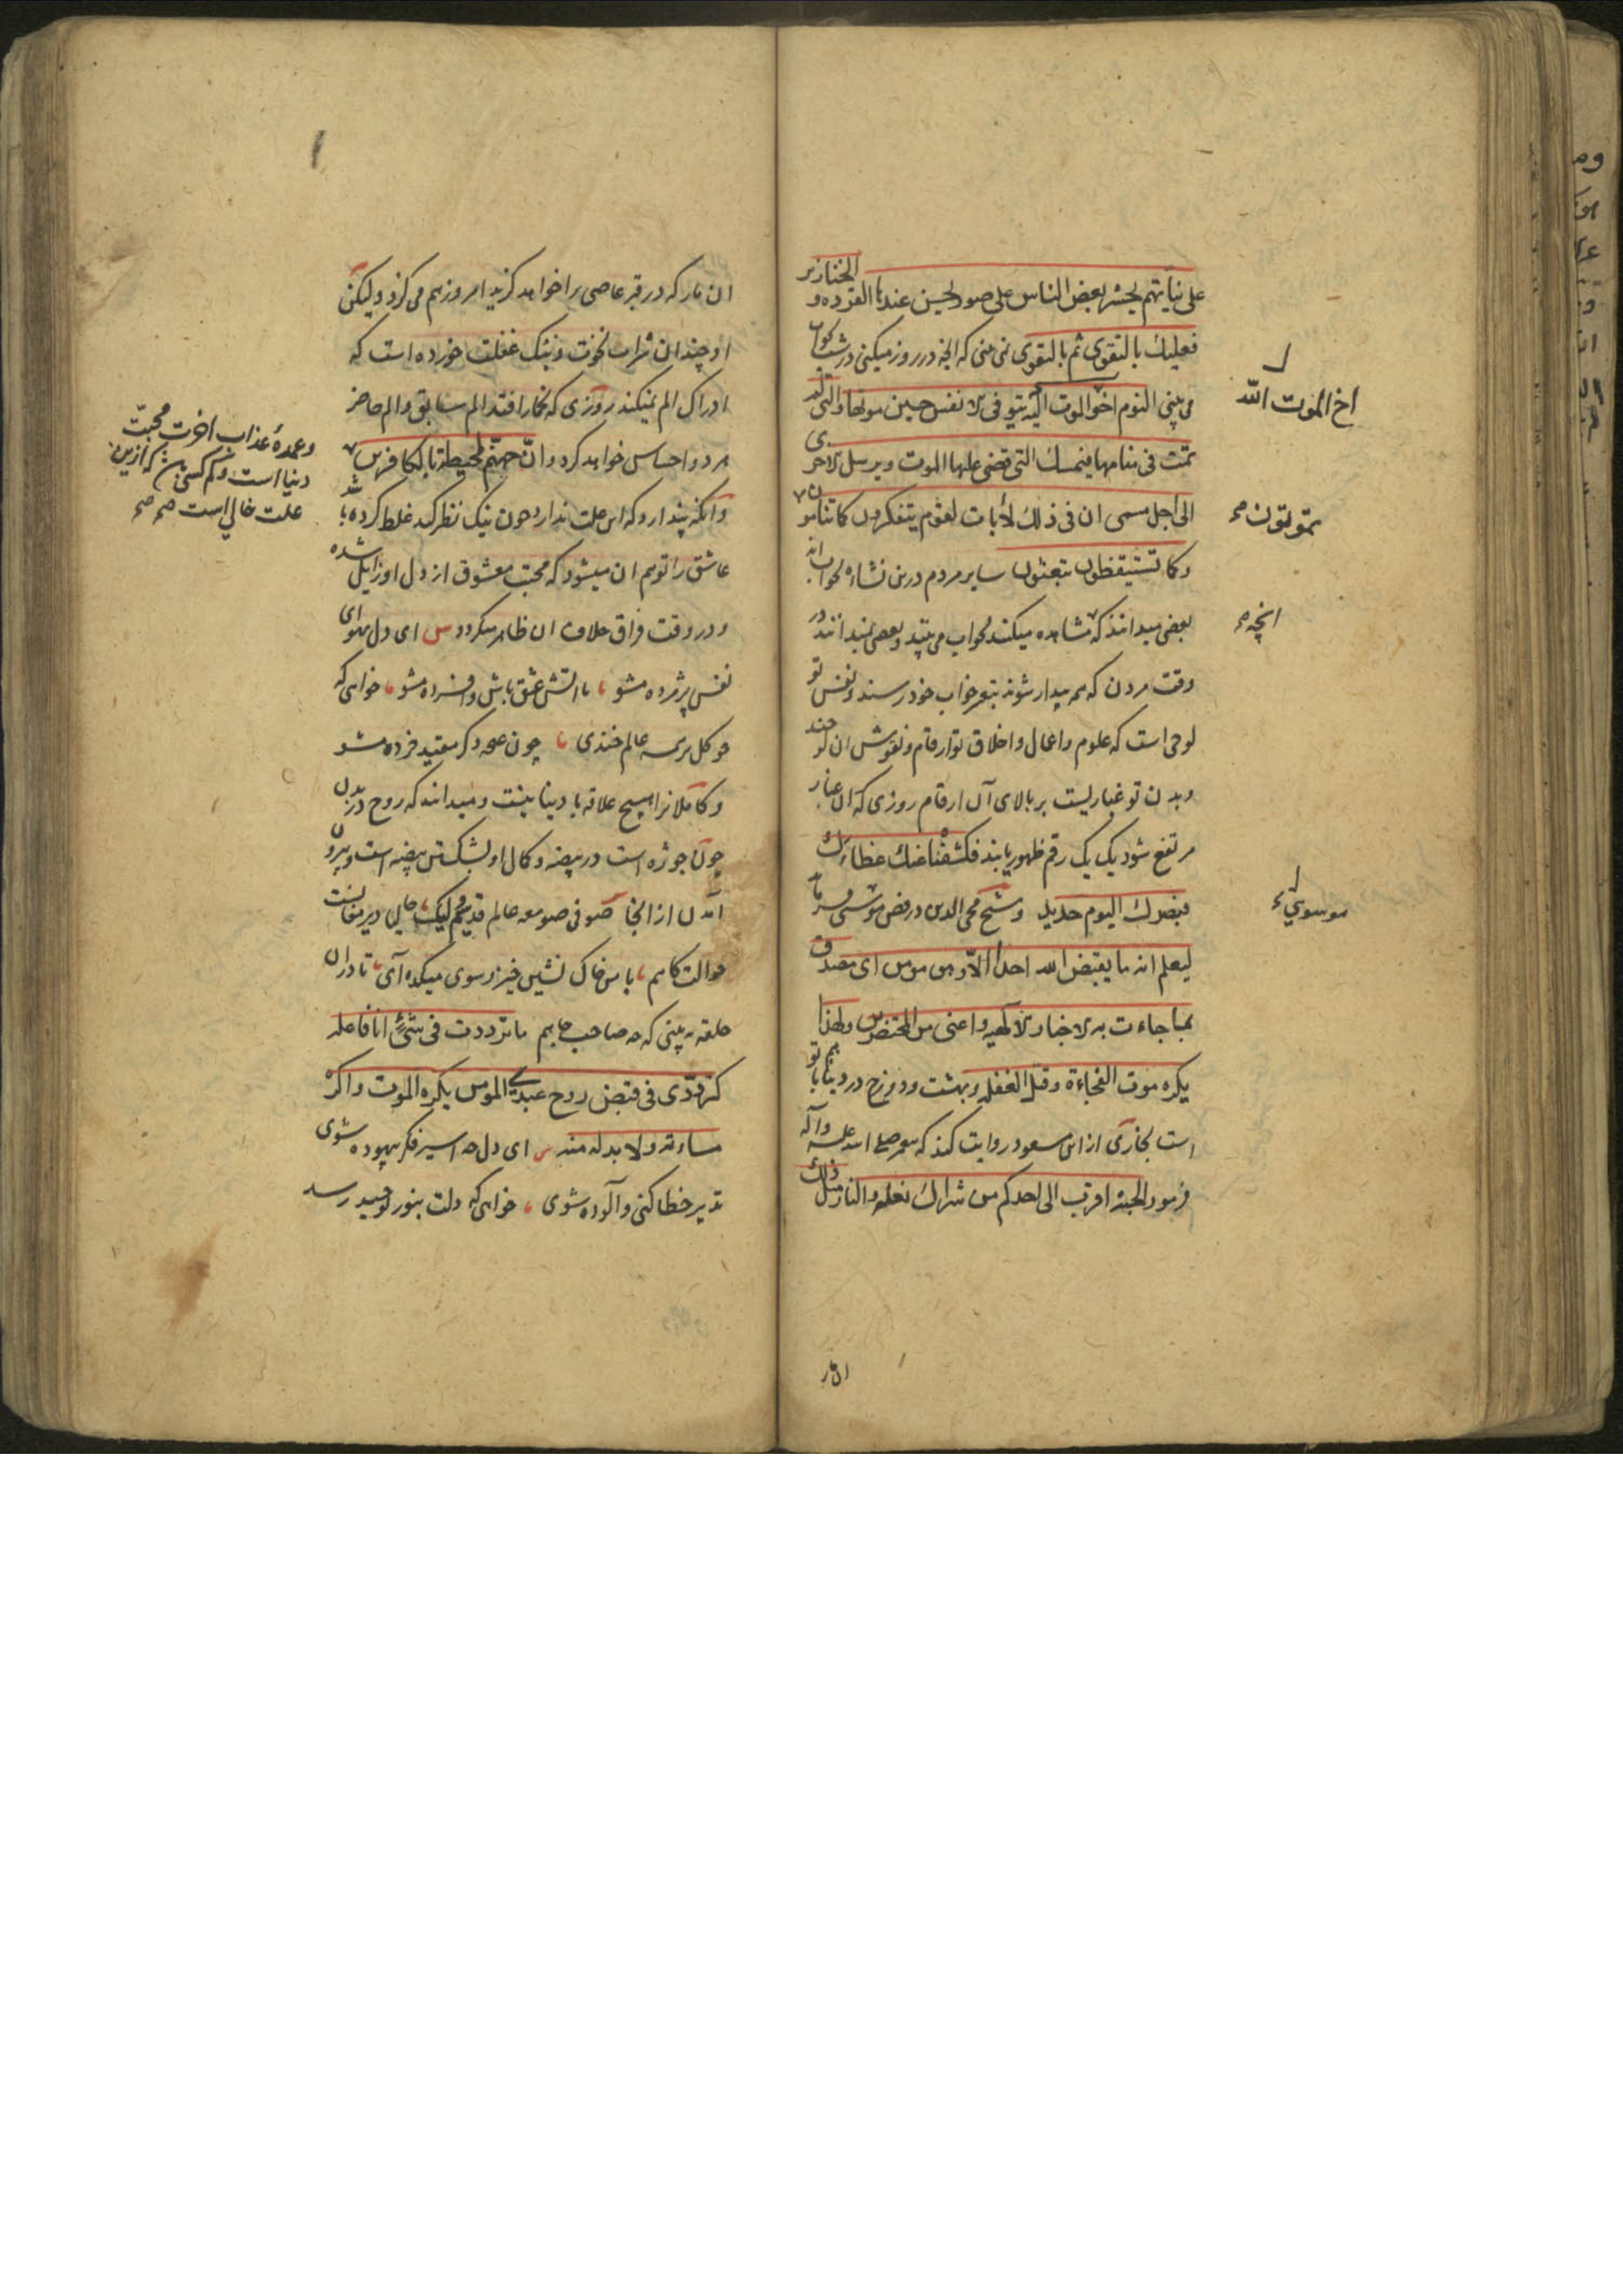 علی نیاتهم یحشر بعض الناس علی صور یحسن عندها القرده و الخنازیر
فعلیك بالتقوی ثم بالتقوی نمی بینی که انچه در روز میکنی در شب بخواب
می بینی النوم اخ الموت الله یتوفی الانفس حین موتها والتی لم
تمت فی منامها فیمسك التی قضی علیها الموت ویرسل الاخری
الی اجل مسمی ان فی ذلك لأیات لقوم یتفکرون کما تنامون
وکما تستیقظون تبعثون سایر مردم درین نشاه بخواب اند
بعضی میدانند که مشاهده میکنند بخواب می بینند و بعضی نمیدانند در
وقت مردن که همه بیدار شوند بتعبیر خواب خود رسند و نفس تو
لوحی است که علوم و اعمال و اخلاق تو ارقام و نقوش آن لوحند
وبدن تو غباریست بر بالای آن ارقام روزی که آن غبار
مرتفع شود یک یک رقم ظهور یابند فکشفنا عنك غطاءك
فبصرك الیوم حدید و شیخ محی الدین در فص موسوی فرماید
لیعلم انه ما یقبض الله احدا الا وهو مومن ای مصدق
بما جاءت به الاخبار الالهیه واعنی من المحتضرین ولهذا
یکره موت الفجاءة وقتل الغفله و بهشت و دوزخ در دنیا با تو هم
است بخاری از ابن مسعود روایت کند که پیغمبر صلی الله علیه وآله
فرمود الجنة اقرب الی احدکم من شراك نعله والنار مثل ذلك
اخ الموت الله
تموتون صح
انچه صح
موسوی
ان مار که در قبر عاصی را خواهد گزید امروز هم می گزد و لیکن
او چندان شراب نخوت و بنک غفلت خورده است که
ادراک الم نمیکند روزی که بخمار افتد الم سابق و الم حاضر
هر دو احساس خواهد کرد و انّ جهنّم لمحیطة بالکافرین
و آنکه پندارد که این علت ندارد چون نیک نظر کند غلط کرده باشد
عاشق را توهم ان میشود که محبت معشوق از دل او زایل شده
و در وقت فراق خلاف ان ظاهر میگردد س ای دل بهوای
نفس پژمرده مشو با اتش عشق باش و افسرده مشو خواهی که
چو گل بر همه عالم خندی چون غنچه دگر مقید خرده مشو
و کاملانرا هیچ علاقه با دنیا نیست و میدانند که روح در بدن
چون جوژه است در بیضه و کمال او بشکستن بیضه است و بیرون
آمدن از انجا صوفی صومعه عالم قدسم لیکن حالی دیر مغانست
حوالت گاهم با من خاک نشین خیز و سوی میکده آی تا دران
حلقه به بینی که چه صاحب جاهم ما ترددت فی شئ انا فاعله
کترددی فی قبض روح عبدی المومن یکره الموت و اکره
مساءته ولا بد له منه س ای دل چه اسیر فکر بیهوده شوی
تدبیر خطا کنی و آلوده شوی خواهی که دلت بنور توحید رسد
وعمدهٔ عذاب اخرت محبّت
دنیا است و کم کسی که ازین
علت خالی است صح صح